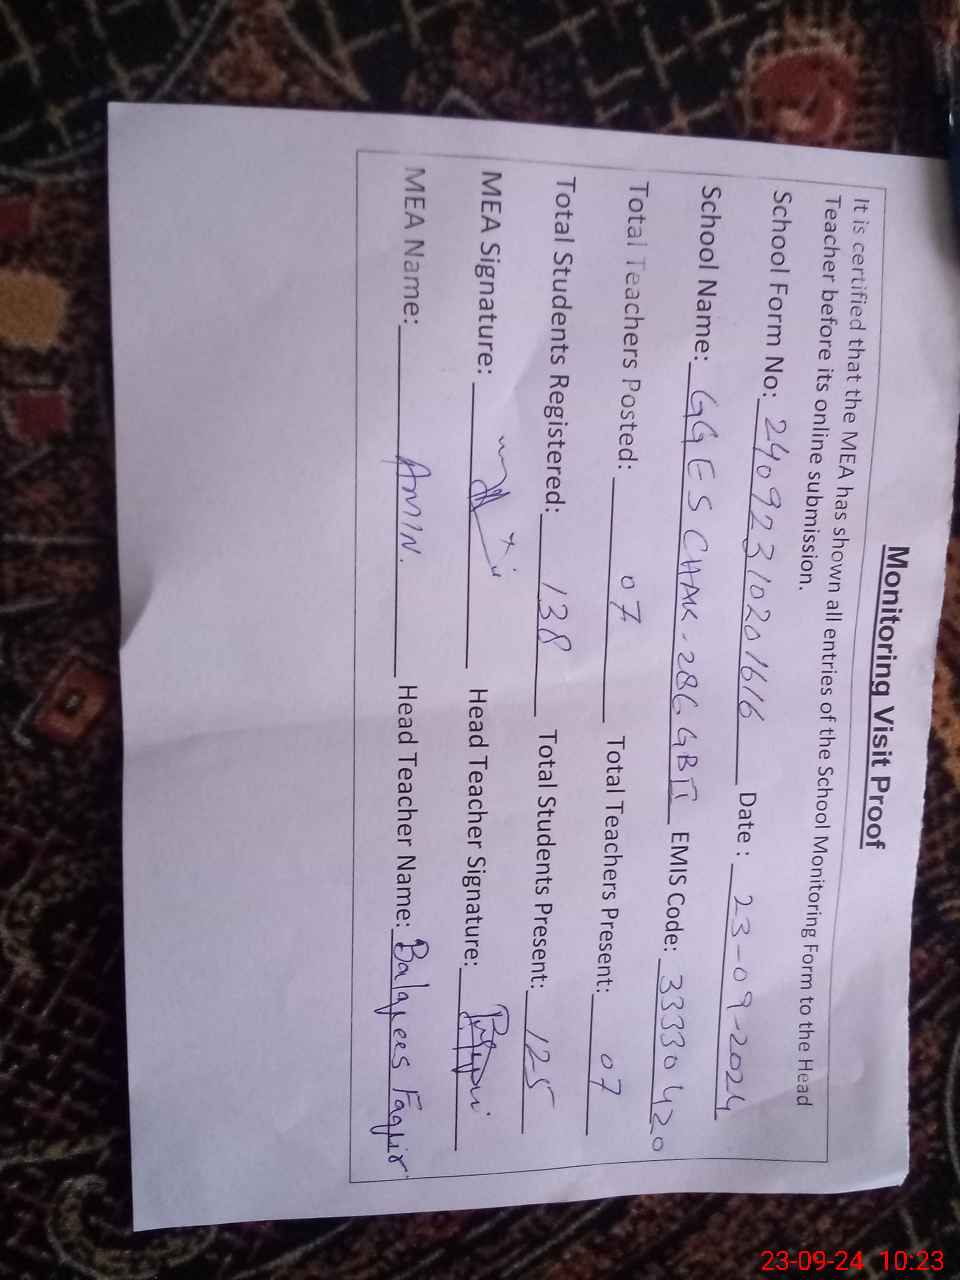 Monitoring Visit Proof
It is certified that the MEA has shown all entries of the School Monitoring Form to the Head
Teacher before its online submission.
School Form No: 24092310201616 Date: 23-09-2024
School Name: GGES CHAK-286 GB II EMIS Code: 33330420
Total Teachers Posted: 07 Total Teachers Present: 07
Total Students Registered: 138 Total Students Present: 125
MEA Signature: Head Teacher Signature:
MEA Name: AMIN. Head Teacher Name: Balqees Faquir
23-09-24 10:23